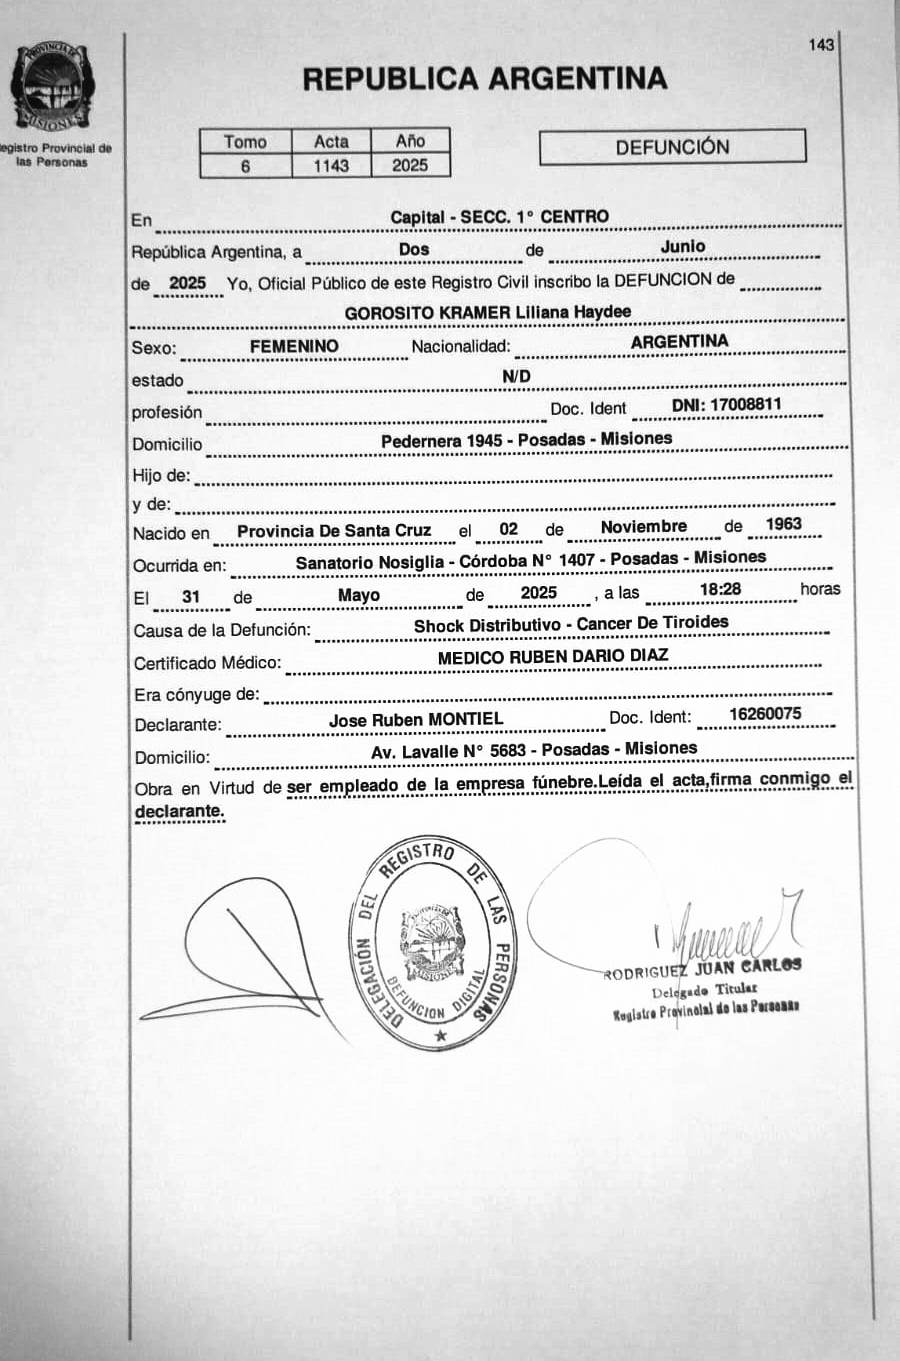 143
PROVINCIA DE
MISIONES
Registro Provincial de
las Personas
REPUBLICA ARGENTINA
Tomo Acta Año
6 1143 2025
DEFUNCIÓN
En Capital - SECC. 1° CENTRO
República Argentina, a Dos de Junio
de 2025 Yo, Oficial Público de este Registro Civil inscribo la DEFUNCION de
GOROSITO KRAMER Liliana Haydee
Sexo: FEMENINO Nacionalidad: ARGENTINA
estado N/D
profesión Doc. Ident DNI: 17008811
Domicilio Pedernera 1945 - Posadas - Misiones
Hijo de:
y de:
Nacido en Provincia De Santa Cruz el 02 de Noviembre de 1963
Ocurrida en: Sanatorio Nosiglia - Córdoba N° 1407 - Posadas - Misiones
El 31 de Mayo de 2025 , a las 18:28 horas
Causa de la Defunción: Shock Distributivo - Cancer De Tiroides
Certificado Médico: MEDICO RUBEN DARIO DIAZ
Era cónyuge de:
Declarante: Jose Ruben MONTIEL Doc. Ident: 16260075
Domicilio: Av. Lavalle N° 5683 - Posadas - Misiones
Obra en Virtud de ser empleado de la empresa fúnebre.Leída el acta,firma conmigo el
declarante.
DELEGACIÓN DEL REGISTRO DE LAS PERSONAS
PROVINCIA DE
MISIONES
DEFUNCION DIGITAL
RODRIGUEZ JUAN CARLOS
Delegado Titular
Registro Provincial de las Personas